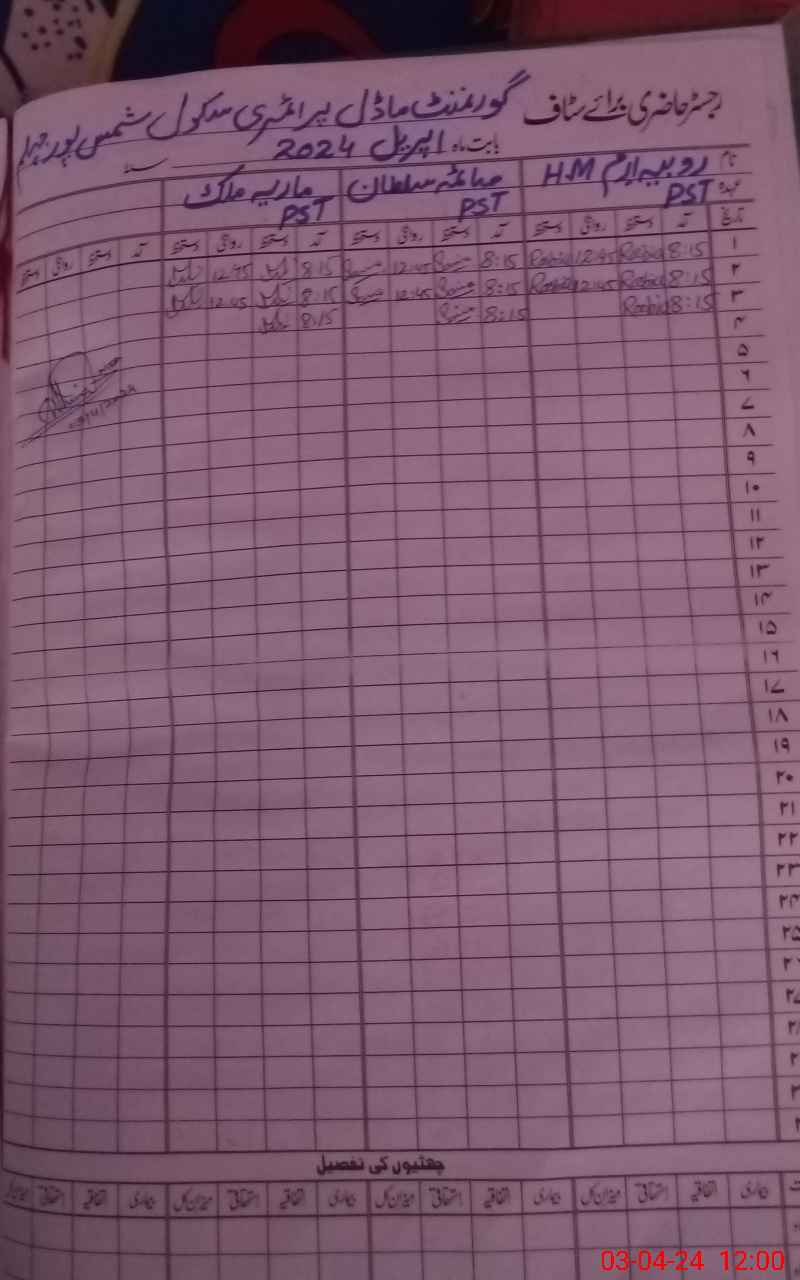 رجسٹر حاضری برائے سٹاف گورنمنٹ ماڈل پرائمری سکول شمس پور جہلم
بابت ماہ اپریل 2024 سنہ
نام روبیہ ارم H.M صائمہ سلطان ماریہ ملک
عہدہ PST PST PST
تاریخ آمد دستخط روانگی دستخط آمد دستخط روانگی دستخط آمد دستخط روانگی دستخط آمد دستخط روانگی دستخط
۱ 8:15 Robia 12:45 Robia 8:15 12:45 8:15 12:45
۲ 8:15 Robia 12:45 Robia 8:15 12:45 8:15 12:45
۳ 8:15 Robia 8:15 8:15
۴
۵
۶
۷
۸
۹
۱۰
۱۱
۱۲
۱۳
۱۴
۱۵
۱۶
۱۷
۱۸
۱۹
۲۰
۲۱
۲۲
۲۳
۲۴
۲۵
چھٹیوں کی تفصیل
بیماری اتفاقیہ استحقاقی میزان کل بیماری اتفاقیہ استحقاقی میزان کل بیماری اتفاقیہ استحقاقی میزان کل بیماری اتفاقیہ استحقاقی میزان کل
03-04-24 12:00